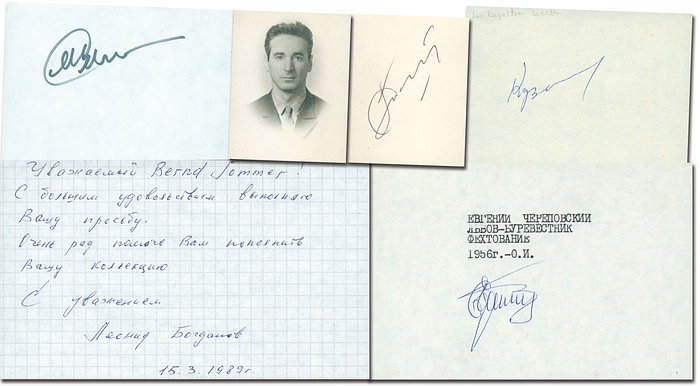 Уважаемый Bernd Sommer!
С большим удовольствием выполняю
Вашу просьбу.
Очень рад помочь Вам пополнить
Вашу коллекцию
С уважением
Леонид Богданов
15.3.1989г.
ЕВГЕНИИ ЧЕРЕПОВСКИЙ
ЛЬВОВ-БУРЕВЕСТНИК
ФЕХТОВАНИЕ
1956г.-О.И.